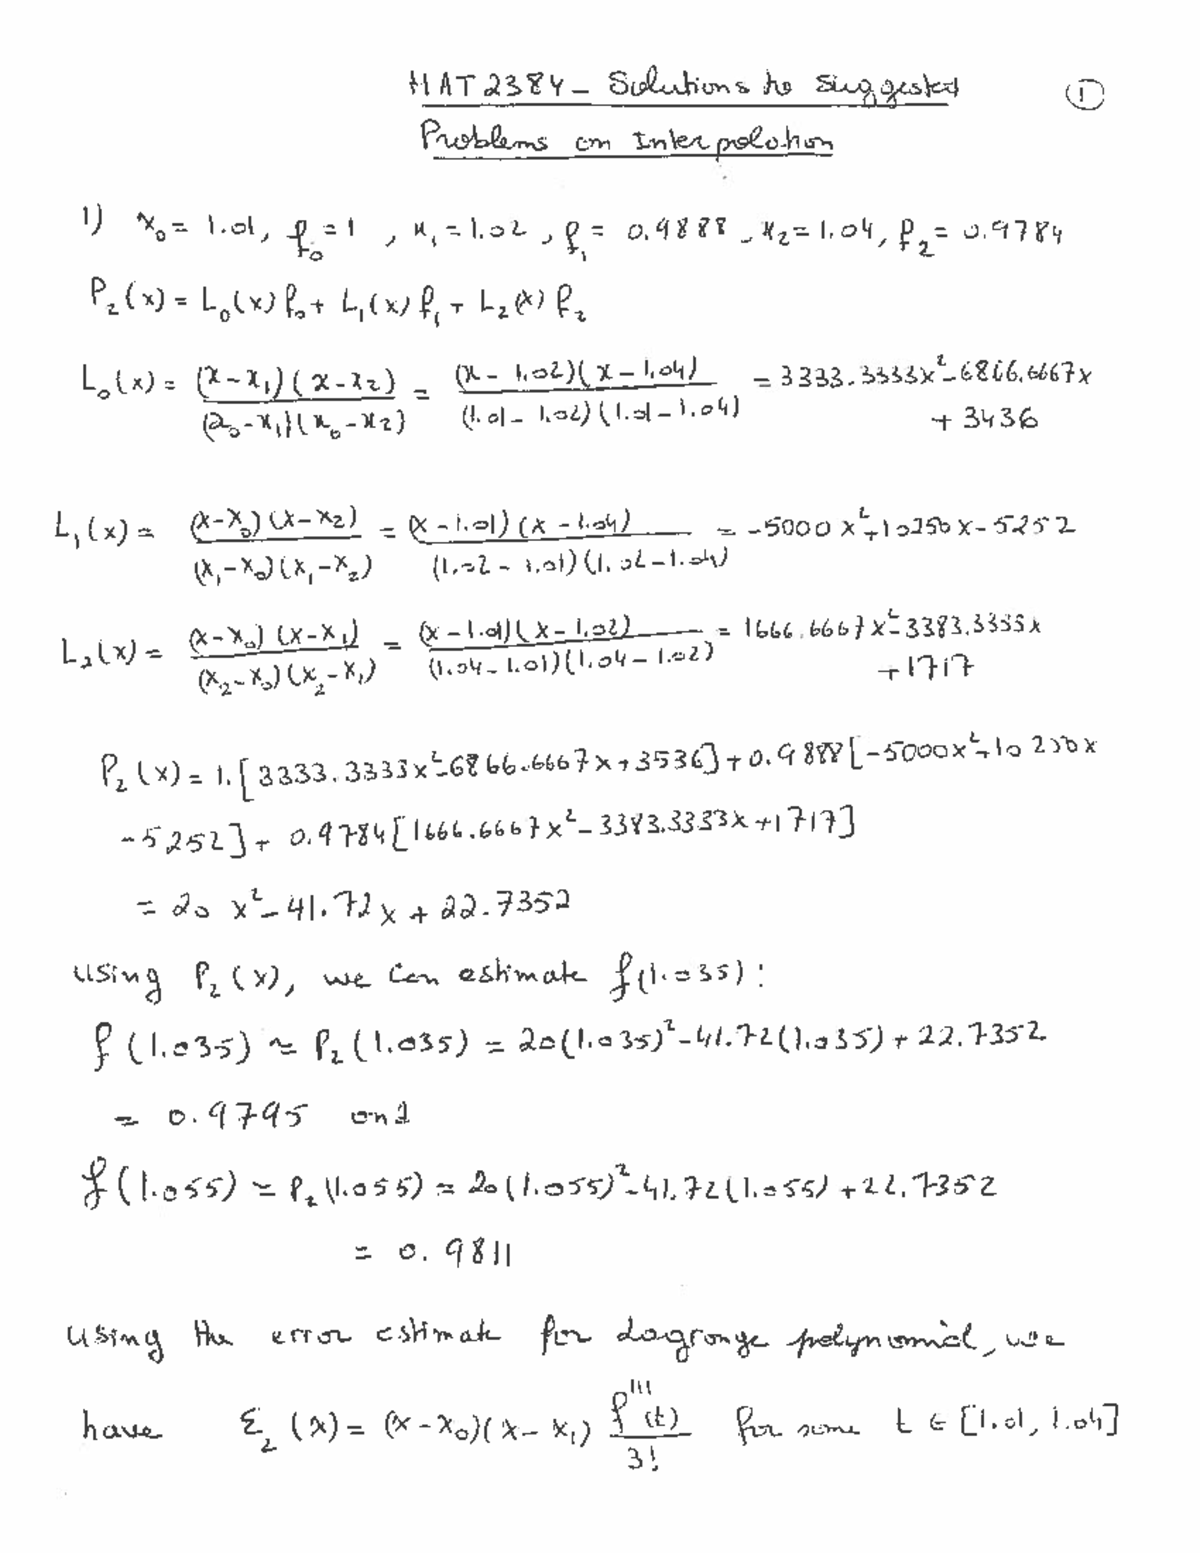 MAT 2384 – Solutions to Suggested ①
Problems on Interpolation
1) x₀ = 1.01, f₀ = 1 , x₁ = 1.02 , f₁ = 0.9888 , x₂ = 1.04, f₂ = 0.9784
P₂(x) = L₀(x) f₀ + L₁(x) f₁ + L₂(x) f₂
L₀(x) = (x-x₁)(x-x₂) / (x₀-x₁)(x₀-x₂) = (x-1.02)(x-1.04) / (1.01-1.02)(1.01-1.04) = 3333.3333x² - 6866.6667x
+ 3436
L₁(x) = (x-x₀)(x-x₂) / (x₁-x₀)(x₁-x₂) = (x-1.01)(x-1.04) / (1.02-1.01)(1.02-1.04) = -5000x² + 10250x - 5252
L₂(x) = (x-x₀)(x-x₁) / (x₂-x₀)(x₂-x₁) = (x-1.01)(x-1.02) / (1.04-1.01)(1.04-1.02) = 1666.6667x² - 3383.3333x
+ 1717
P₂(x) = 1.[3333.3333x² - 6866.6667x + 3536] + 0.9888[-5000x² + 10250x
- 5252] + 0.9784[1666.6667x² - 3383.3333x + 1717]
= 20x² - 41.72x + 22.7352
using P₂(x), we can estimate f(1.035):
f(1.035) ≈ P₂(1.035) = 20(1.035)² - 41.72(1.035) + 22.7352
= 0.9795 and
f(1.055) ≃ P₂(1.055) = 20(1.055)² - 41.72(1.055) + 22.7352
= 0.9811
using the error estimate for Lagrange polynomial, we
have Σ₂(x) = (x-x₀)(x-x₁) f'''(t) / 3! for some t ∈ [1.01, 1.04]